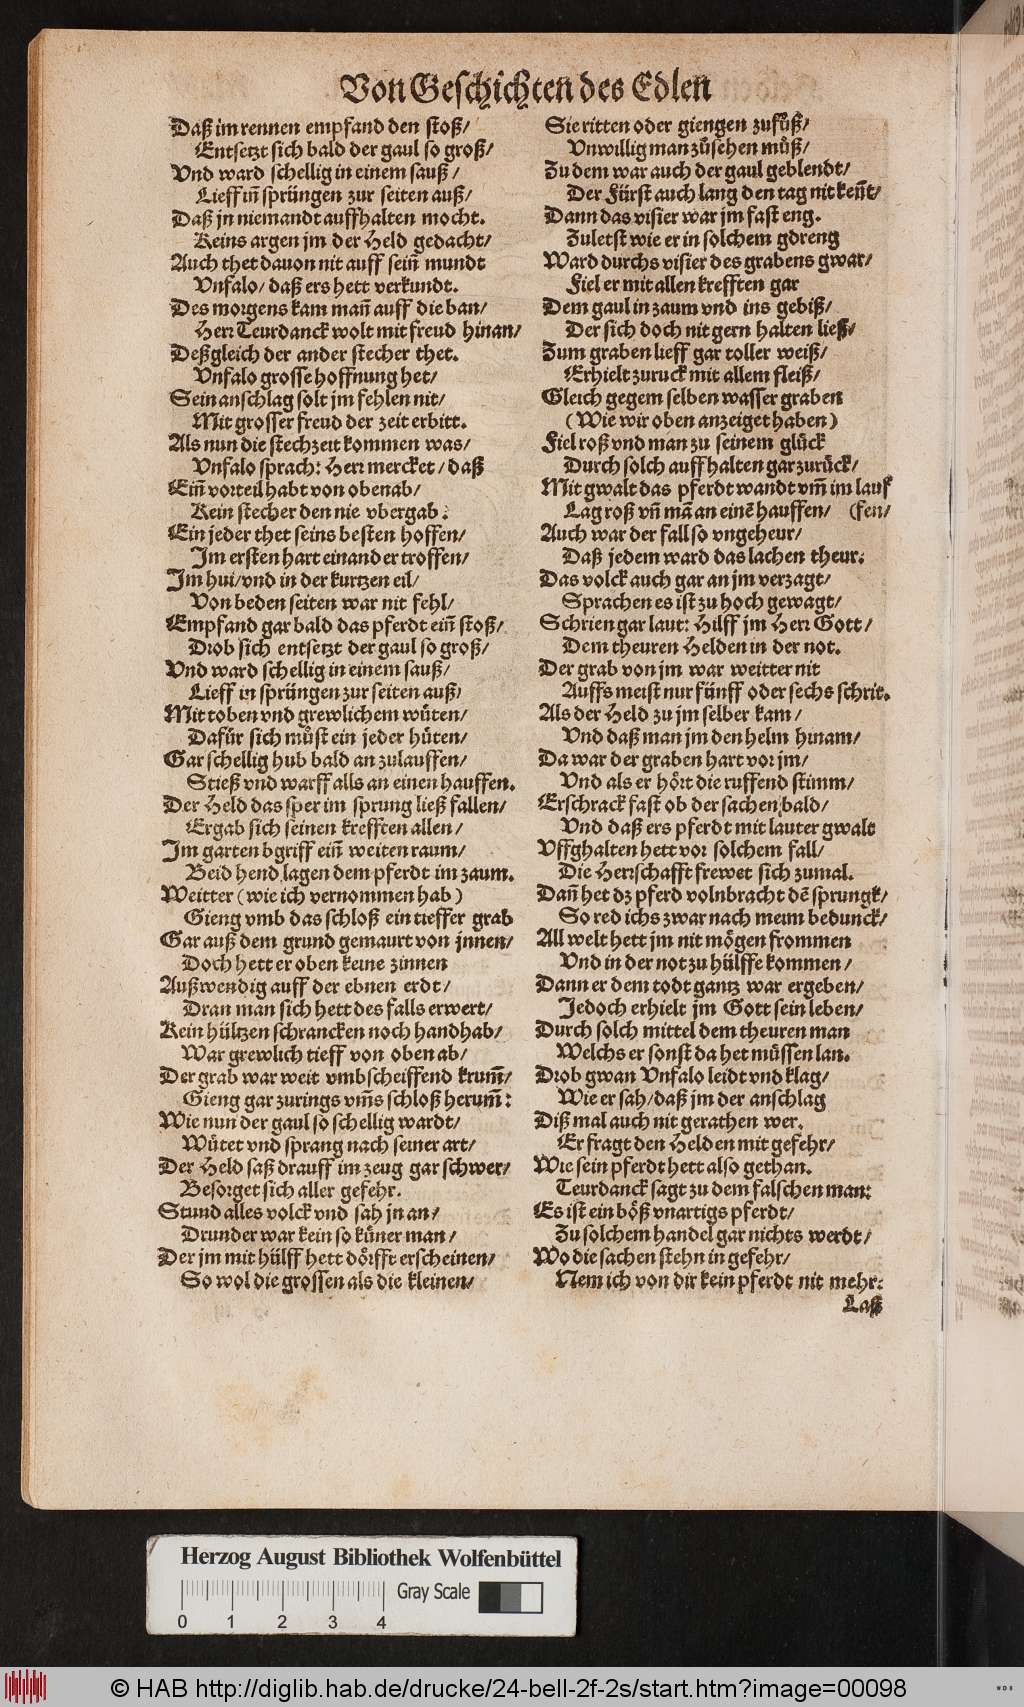 Von Geschichten des Edlen
Daß im rennen empfand den stoß/
Entsetzt sich bald der gaul so groß/
Vnd ward schellig in einem sauß/
Lieff in̄ sprüngen zur seiten auß/
Daß jn niemandt auffhalten mocht.
Keins argen jm der Held gedacht/
Auch thet dauon nit auff sein̄ mundt
Vnfalo/ daß ers hett verkundt.
Des morgens kam man̄ auff die ban/
Herr Teurdanck wolt mit freud hinan/
Deßgleich der ander stecher thet.
Vnfalo grosse hoffnung het/
Sein anschlag solt jm fehlen nit/
Mit grosser freud der zeit erbitt.
Als nun die stechzeit kommen was/
Vnfalo sprach: Herr mercket/ daß
Ein̄ vorteil habt von obenab/
Kein stecher den nie vbergab:
Ein jeder thet seins besten hoffen/
Im ersten hart einander troffen/
Im hui/ vnd in der kurtzen eil/
Von beden seiten war nit fehl/
Empfand gar bald das pferdt ein̄ stoß/
Drob sich entsetzt der gaul so groß/
Vnd ward schellig in einem sauß/
Lieff in sprüngen zur seiten auß/
Mit toben vnd grewlichem wüten/
Dafür sich müst ein jeder hüten/
Gar schellig hub bald an zulauffen/
Stieß vnd warff alls an einen hauffen.
Der Held das sper im sprung ließ fallen/
Ergab sich seinen krefften allen/
Im garten bgriff ein̄ weiten raum/
Beid hend lagen dem pferdt im zaum.
Weitter (wie ich vernommen hab)
Gieng vmb das schloß ein tieffer grab
Gar auß dem grund gemaurt von jnnen/
Doch hett er oben keine zinnen
Außwendig auff der ebnen erdt/
Dran man sich hett des falls erwert/
Kein hültzen schrancken noch handhab/
War grewlich tieff von oben ab/
Der grab war weit vmbscheiffend krum̄/
Gieng gar zurings vm̄s schloß herum̄:
Wie nun der gaul so schellig wardt/
Wütet vnd sprang nach seiner art/
Der Held saß drauff im zeug gar schwer/
Besorget sich aller gefehr.
Stund alles volck vnd sah jn an/
Drunder war kein so küner man/
Der jm mit hülff hett dörfft erscheinen/
So wol die grossen als die kleinen/
Sie ritten oder giengen zufüß/
Vnwillig man züsehen müß/
Zu dem war auch der gaul geblendt/
Der Fürst auch lang den tag nit ken̄t/
Dann das visier war jm fast eng.
Zuletst wie er in solchem gdreng
Ward durchs visier des grabens gwar/
Fiel er mit allen krefften gar
Dem gaul in zaum vnd ins gebiß/
Der sich doch nit gern halten ließ/
Zum graben lieff gar toller weiß/
Erhielt zuruck mit allem fleiß/
Gleich gegem selben wasser graben
(Wie wir oben anzeiget haben)
Fiel roß vnd man zu seinem glück
Durch solch auffhalten gar zurück/
Mit gwalt das pferdt wandt vm̄ im lauf
Lag roß vn̄ mā an einē hauffen/ (fen/
Auch war der fall so vngeheur/
Daß jedem ward das lachen theur:
Das volck auch gar an jm verzagt/
Sprachen es ist zu hoch gewagt/
Schrien gar laut: Hilff jm Herr Gott/
Dem theuren Helden in der not.
Der grab von jm war weitter nit
Auffs meist nur fünff oder sechs schrit.
Als der Held zu jm selber kam/
Vnd daß man jm den helm hinam/
Da war der graben hart vor jm/
Vnd als er hört die ruffend stimm/
Erschrack fast ob der sachen bald/
Vnd daß ers pferdt mit lauter gwalt
Vffghalten hett vor solchem fall/
Die Herrschafft frewet sich zumal.
Dan̄ het dz pferd volnbracht dē sprungk/
So red ichs zwar nach meim bedunck/
All welt hett jm nit mögen frommen
Vnd in der not zu hülffe kommen/
Dann er dem todt gantz war ergeben/
Jedoch erhielt jm Gott sein leben/
Durch solch mittel dem theuren man
Welchs er sonst da het müssen lan.
Drob gwan Vnfalo leidt vnd klag/
Wie er sah/ daß jm der anschlag
Diß mal auch nit gerathen wer.
Er fragt den Helden mit gefehr/
Wie sein pferdt hett also gethan.
Teurdanck sagt zu dem falschen man:
Es ist ein böß vnartigs pferdt/
Zu solchem handel gar nichts werdt/
Wo die sachen stehn in gefehr/
Nem ich von dir kein pferdt nit mehr:
Laß
Herzog August Bibliothek Wolfenbüttel
Gray Scale
0 1 2 3 4
© HAB http://diglib.hab.de/drucke/24-bell-2f-2s/start.htm?image=00098